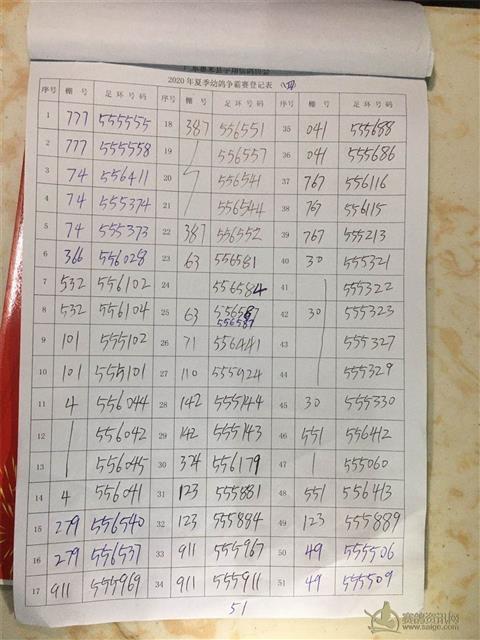 2020年夏季幼鸽争霸赛登记表
序号 棚号 足环号码 序号 棚号 足环号码 序号 棚号 足环号码
1 777 555555 18 387 556551 35 041 555688
2 777 555558 19 556557 36 041 555686
3 74 556411 20 556541 37 767 556116
4 74 555374 21 556544 38 767 556115
5 74 555373 22 387 556552 39 767 555213
6 366 556028 23 63 556581 40 30 555321
7 532 556102 24 556584 41 555322
8 532 556104 25 63 556587 42 30 555323
556587
9 101 555102 26 71 556441 43 555327
10 101 555101 27 110 555924 44 555329
11 4 556044 28 142 555144 45 30 555330
12 556042 29 142 555143 46 551 556412
13 556045 30 324 556179 47 555060
14 4 556041 31 123 555881 48 551 556413
15 279 556540 32 123 555884 49 123 555889
16 279 556537 33 911 555967 50 49 555506
17 911 555969 34 911 555911 51 49 555509
51
赛鸽资讯网
www.saige.com